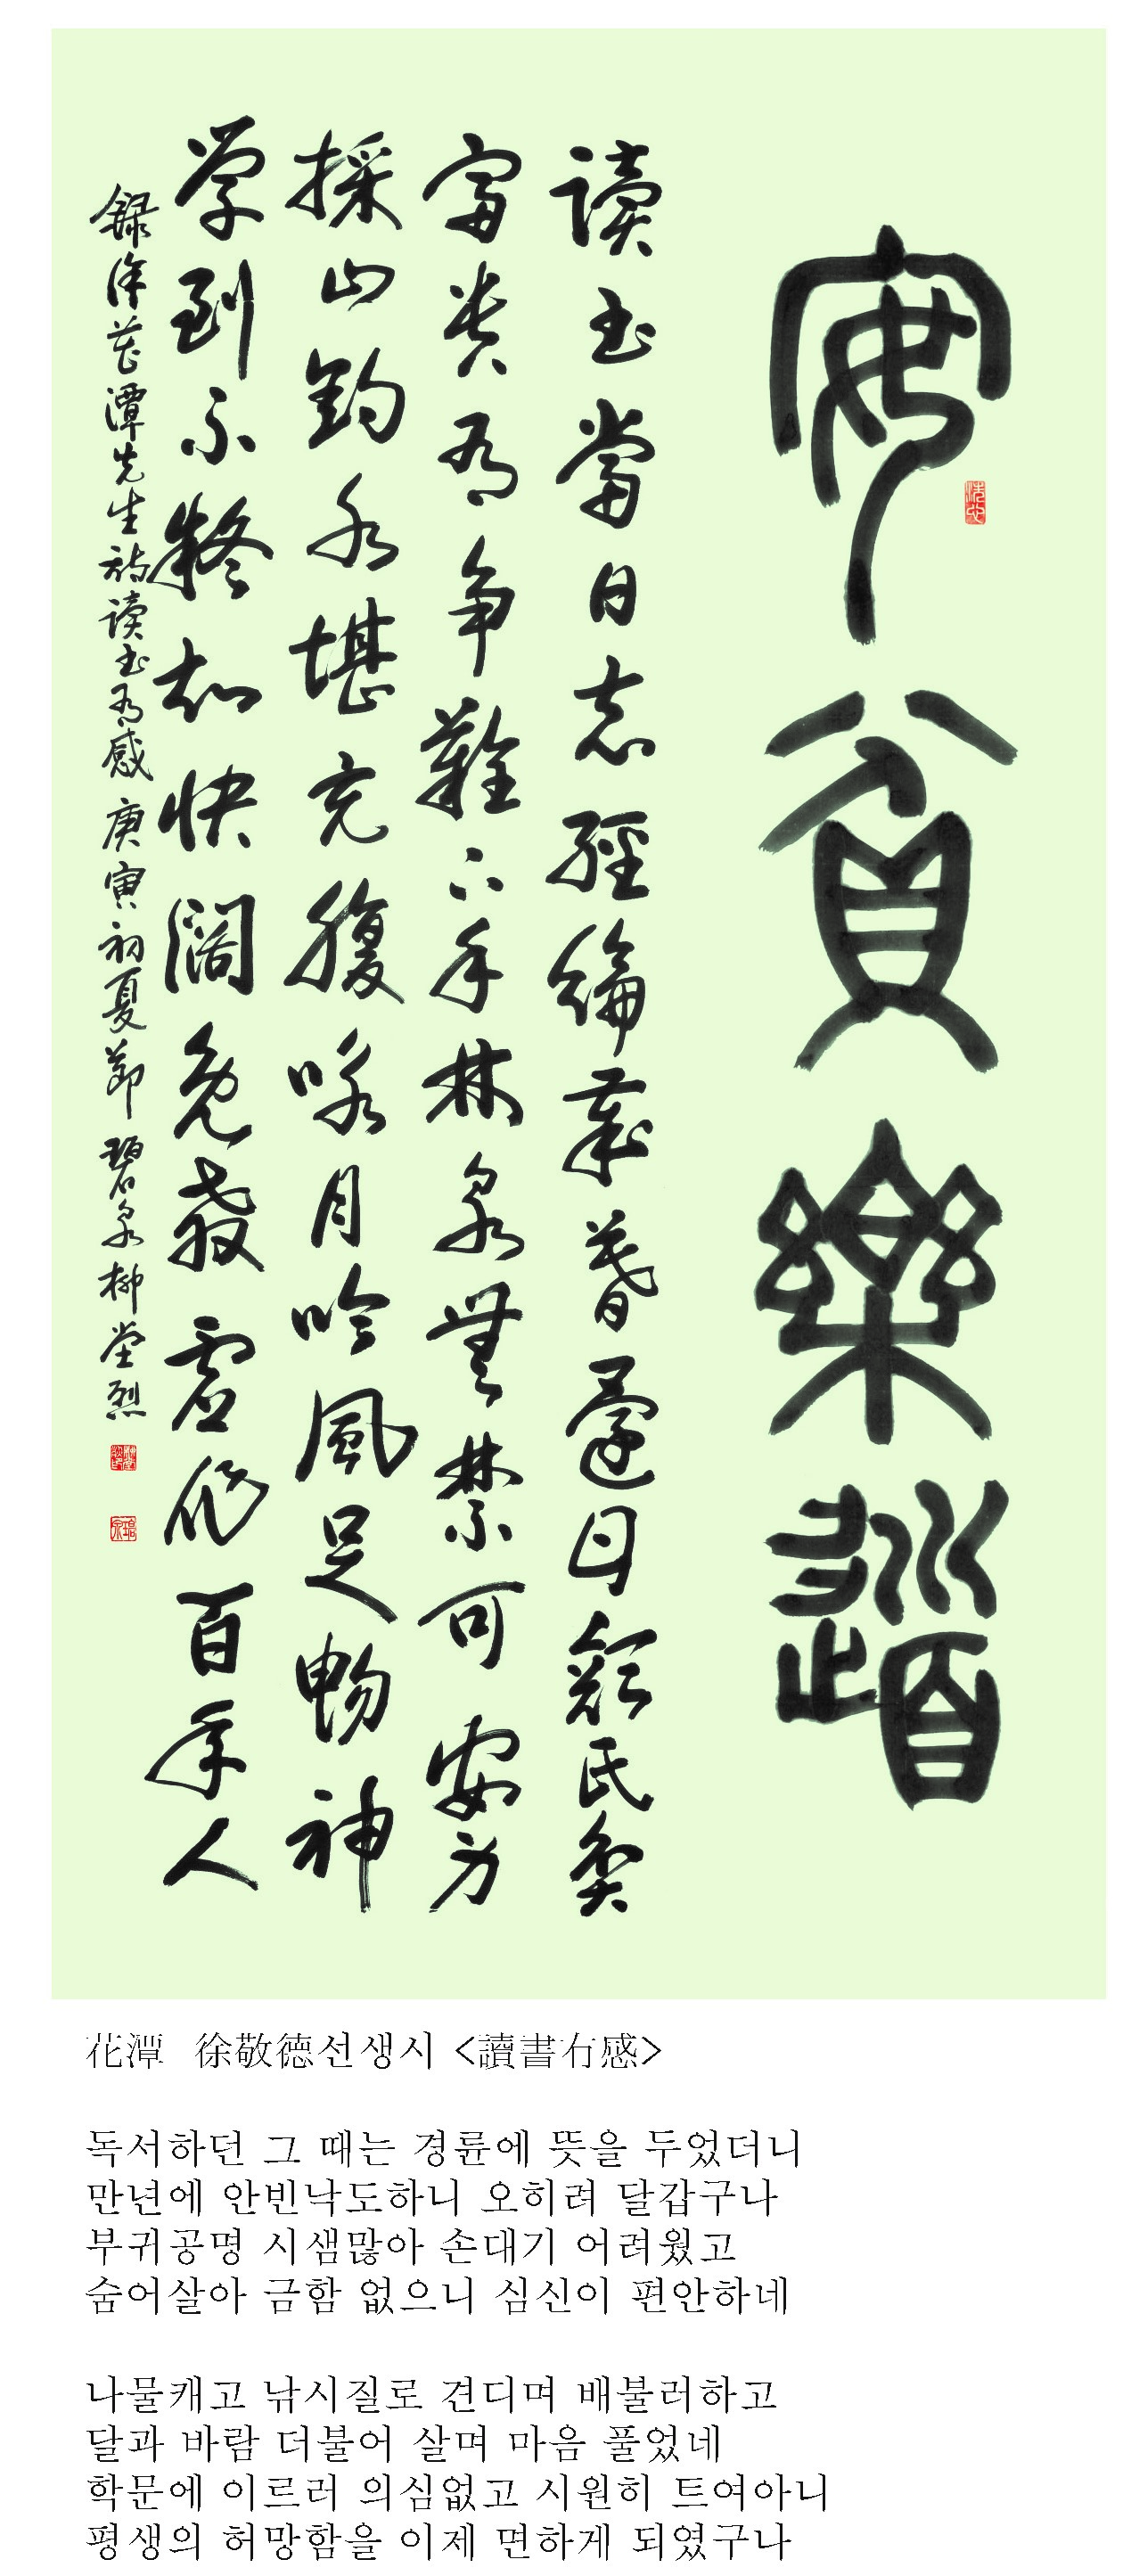 安貧樂道
讀書當日志經綸歲暮還甘顔氏貧
富貴有爭難下手林泉無禁可安身
採山釣水堪充腹咏月吟風足暢神
学到不疑知快闊免教虛作百年人
錄徐花潭先生詩讀書有感 庚寅初夏節 碧泉 柳 烈
花潭 徐敬德선생시 <讀書有感>
독서하던 그 때는 경륜에 뜻을 두었더니
만년에 안빈낙도하니 오히려 달갑구나
부귀공명 시샘많아 손대기 어려웠고
숨어살아 금함 없으니 심신이 편안하네
나물캐고 낚시질로 견디며 배불러하고
달과 바람 더불어 살며 마음 풀었네
학문에 이르러 의심없고 시원히 트여아니
평생의 허망함을 이제 면하게 되였구나